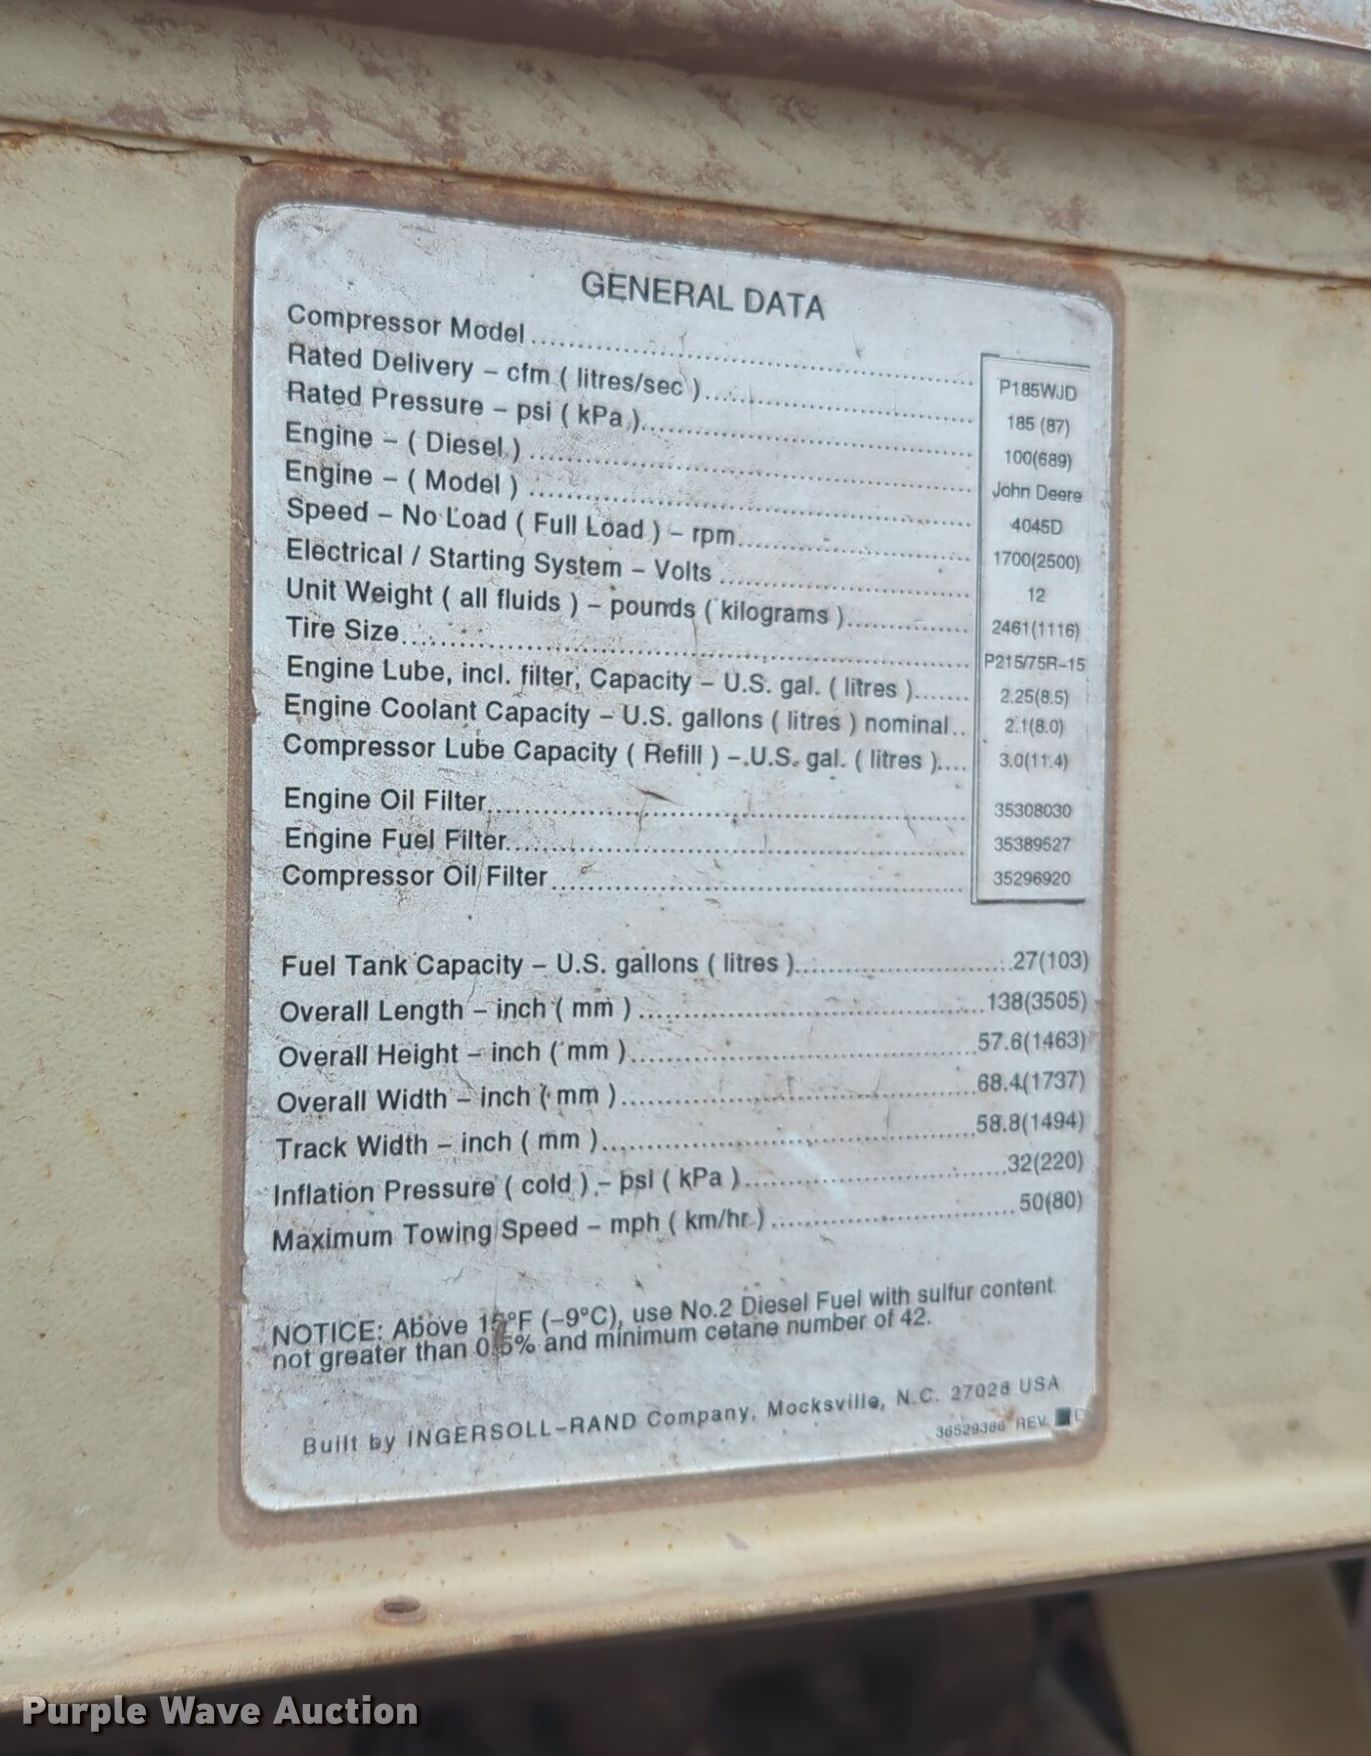 GENERAL DATA
Compressor Model ........ P185WJD
Rated Delivery – cfm ( litres/sec ) ........ 185 (87)
Rated Pressure – psi ( kPa ) ........ 100(689)
Engine – ( Diesel ) ........ John Deere
Engine – ( Model ) ........ 4045D
Speed – No Load ( Full Load ) – rpm ........ 1700(2500)
Electrical / Starting System – Volts ........ 12
Unit Weight ( all fluids ) – pounds ( kilograms ) ........ 2461(1116)
Tire Size ........ P215/75R–15
Engine Lube, incl. filter, Capacity – U.S. gal. ( litres ) ........ 2.25(8.5)
Engine Coolant Capacity – U.S. gallons ( litres ) nominal .. 2.1(8.0)
Compressor Lube Capacity ( Refill ) – U.S. gal. ( litres ) .... 3.0(11.4)
Engine Oil Filter ........ 35308030
Engine Fuel Filter ........ 35389527
Compressor Oil Filter ........ 35296920
Fuel Tank Capacity – U.S. gallons ( litres ) ........ 27(103)
Overall Length – inch ( mm ) ........ 138(3505)
Overall Height – inch ( mm ) ........ 57.6(1463)
Overall Width – inch ( mm ) ........ 68.4(1737)
Track Width – inch ( mm ) ........ 58.8(1494)
Inflation Pressure ( cold ) – psi ( kPa ) ........ 32(220)
Maximum Towing Speed – mph ( km/hr ) ........ 50(80)
NOTICE: Above 15°F (–9°C), use No.2 Diesel Fuel with sulfur content
not greater than 0.5% and minimum cetane number of 42.
Built by INGERSOLL–RAND Company, Mocksville, N.C. 27028 USA
36529386 REV.
Purple Wave Auction